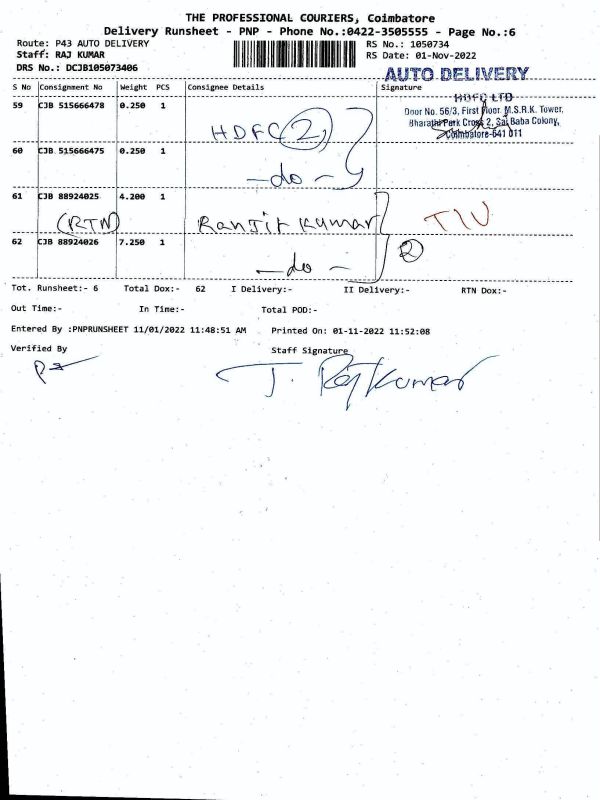 THE PROFESSIONAL COURIERS, Coimbatore
Delivery Runsheet - PNP - Phone No.:0422-3505555 - Page No.:6
Route: P43 AUTO DELIVERY RS No.: 1050734
Staff: RAJ KUMAR RS Date: 01-Nov-2022
DRS No.: DCJB105073406
AUTO DELIVERY
S No Consignment No Weight PCS Consignee Details Signature
HDFC LTD
59 CJB 515666478 0.250 1
Door No. 56/3, First Floor, M.S.R.K. Tower,
Bharathi Park Cross 2, Sai Baba Colony,
HDFC (2)
Coimbatore-641 011
60 CJB 515666475 0.250 1
-do-
61 CJB 88924025 4.200 1
(RTN) Ranjit Kumar
62 CJB 88924026 7.250 1
-do-
Tot. Runsheet:- 6 Total Dox:- 62 I Delivery:- II Delivery:- RTN Dox:-
Out Time:- In Time:- Total POD:-
Entered By :PNPRUNSHEET 11/01/2022 11:48:51 AM Printed On: 01-11-2022 11:52:08
Verified By Staff Signature
J. Rajkumar